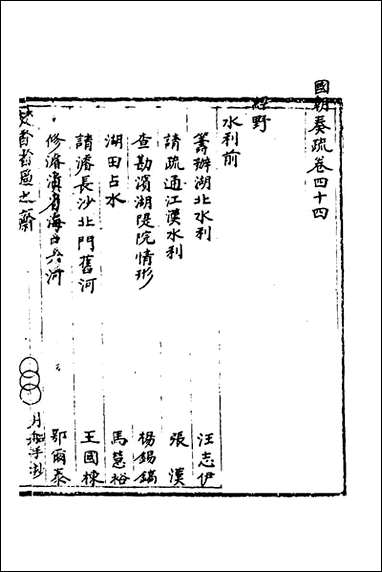 國朝奏疏卷四十四
經野
水利前
籌辦湖北水利 汪志伊
請疏通江漢水利 張漢
查勘濱湖隄院情形 楊錫紱
湖田占水 馬慧裕
請濬長沙北門舊河 王國棟
修濬滇省海口六河 鄂爾泰
之齋